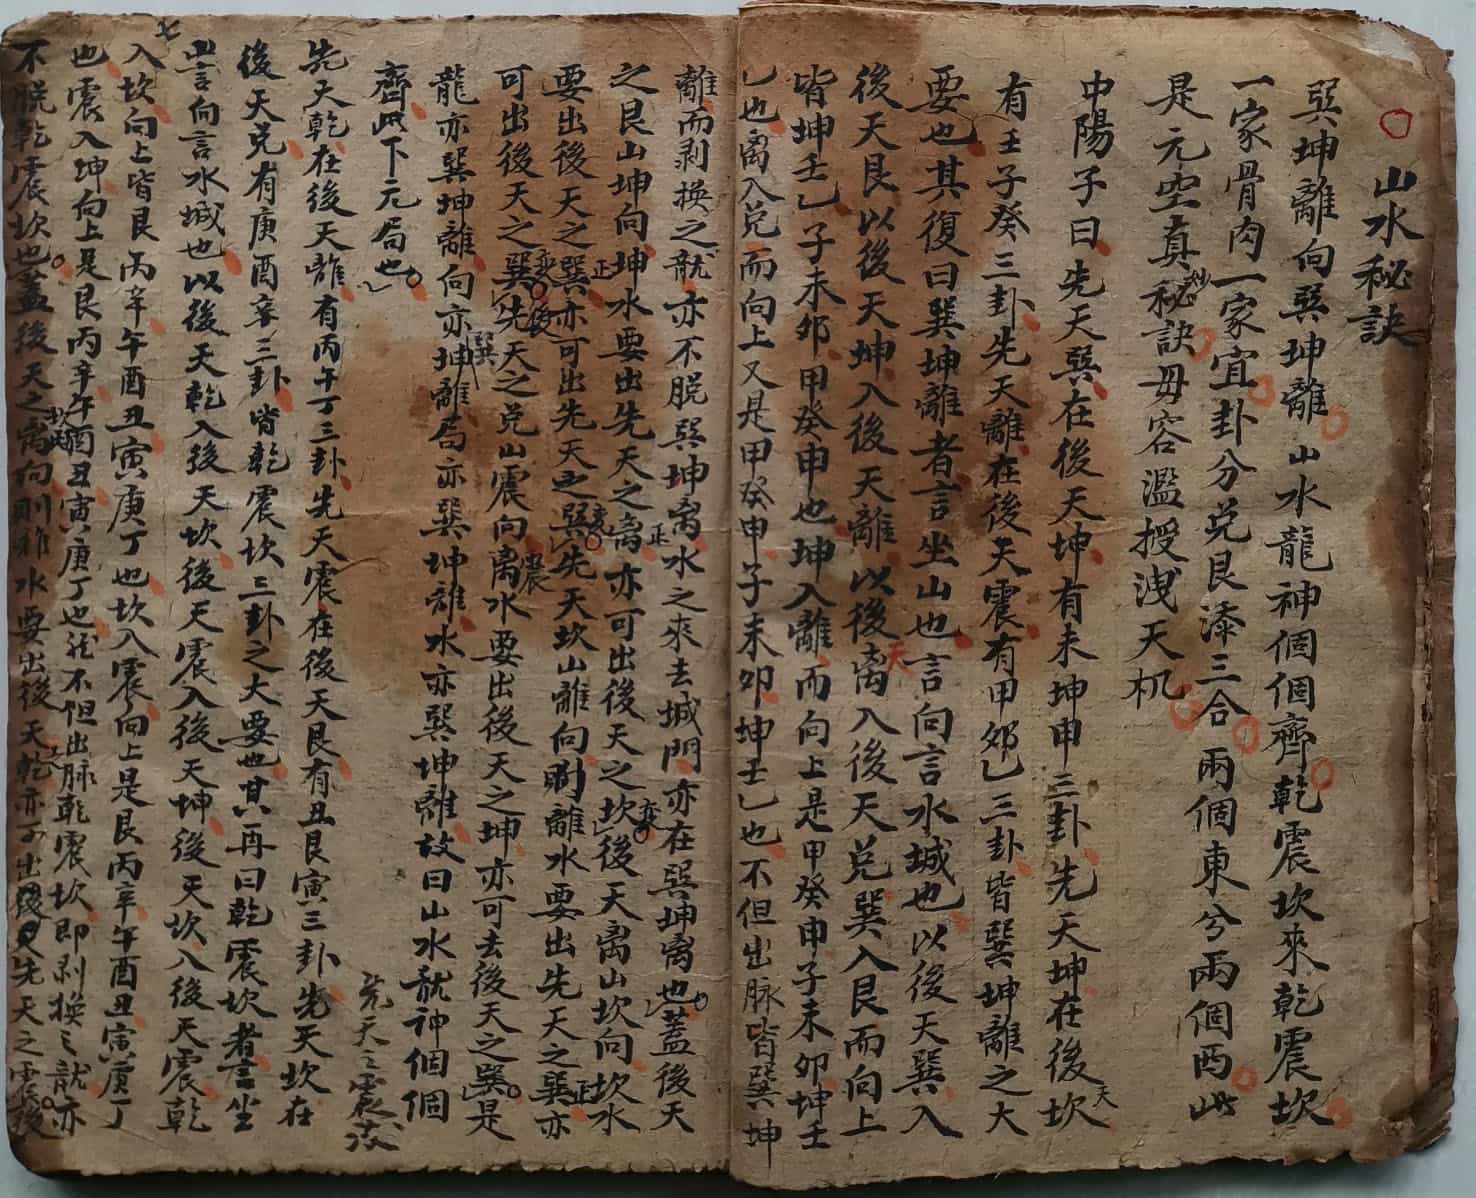 山水秘訣
巽坤離向巽坤離山水龍神個個齊乾震坎來乾震坎
一家骨肉一家宜卦分兌艮添三合兩個東兮兩個西此
是元空真秘訣毋容濫授洩天机
中陽子曰先天巽在後天坤有未坤申三卦先天坤在後天坎
有壬子癸三卦先天離在後天震有甲卯乙三卦皆巽坤離之大
要也其復曰巽坤離者言坐山也言向言水城也以後天巽入
後天艮以後天坤入後天離以後天离入後天兌巽入艮而向上
皆坤壬乙子未卯甲癸申也坤入離而向上是甲癸申子未卯坤壬
乙也离入兌而向上又是甲癸申子未卯坤壬乙也不但出脉皆巽坤
離而剥換之龍亦不脱巽坤离水之來去城門亦在巽坤离也蓋後天
之艮山坤向坤水要出先天之离亦可出後天之坎後天离山坎向坎水
要出後天之巽亦可出先天之巽先天坎山離向離水要出先天之巽亦
可出後天之巽先天之兌山震向离水要出後天之坤亦可去後天之巽是
龍亦巽坤離向亦坤離局亦巽坤離水亦巽坤離故曰山水龍神個個
齊此下元局也
先天乾在後天離有丙午丁三卦先天震在後天艮有丑艮寅三卦先天坎在
後天兌有庚酉辛三卦皆乾震坎三卦之大要也其再曰乾震坎者言坐
山言向言水城也以後天乾入後天坎後天震入後天坤後天坎入後天震乾
入坎向上皆艮丙辛午酉丑寅庚丁也坎入震向上是艮丙辛午酉丑寅庚丁
也震入坤向上是艮丙辛午酉丑寅庚丁也然不但出脉乾震坎即剥換之龍亦
不脱乾震坎也蓋後天之离向離水要出後天乾亦可出後天先天之震後